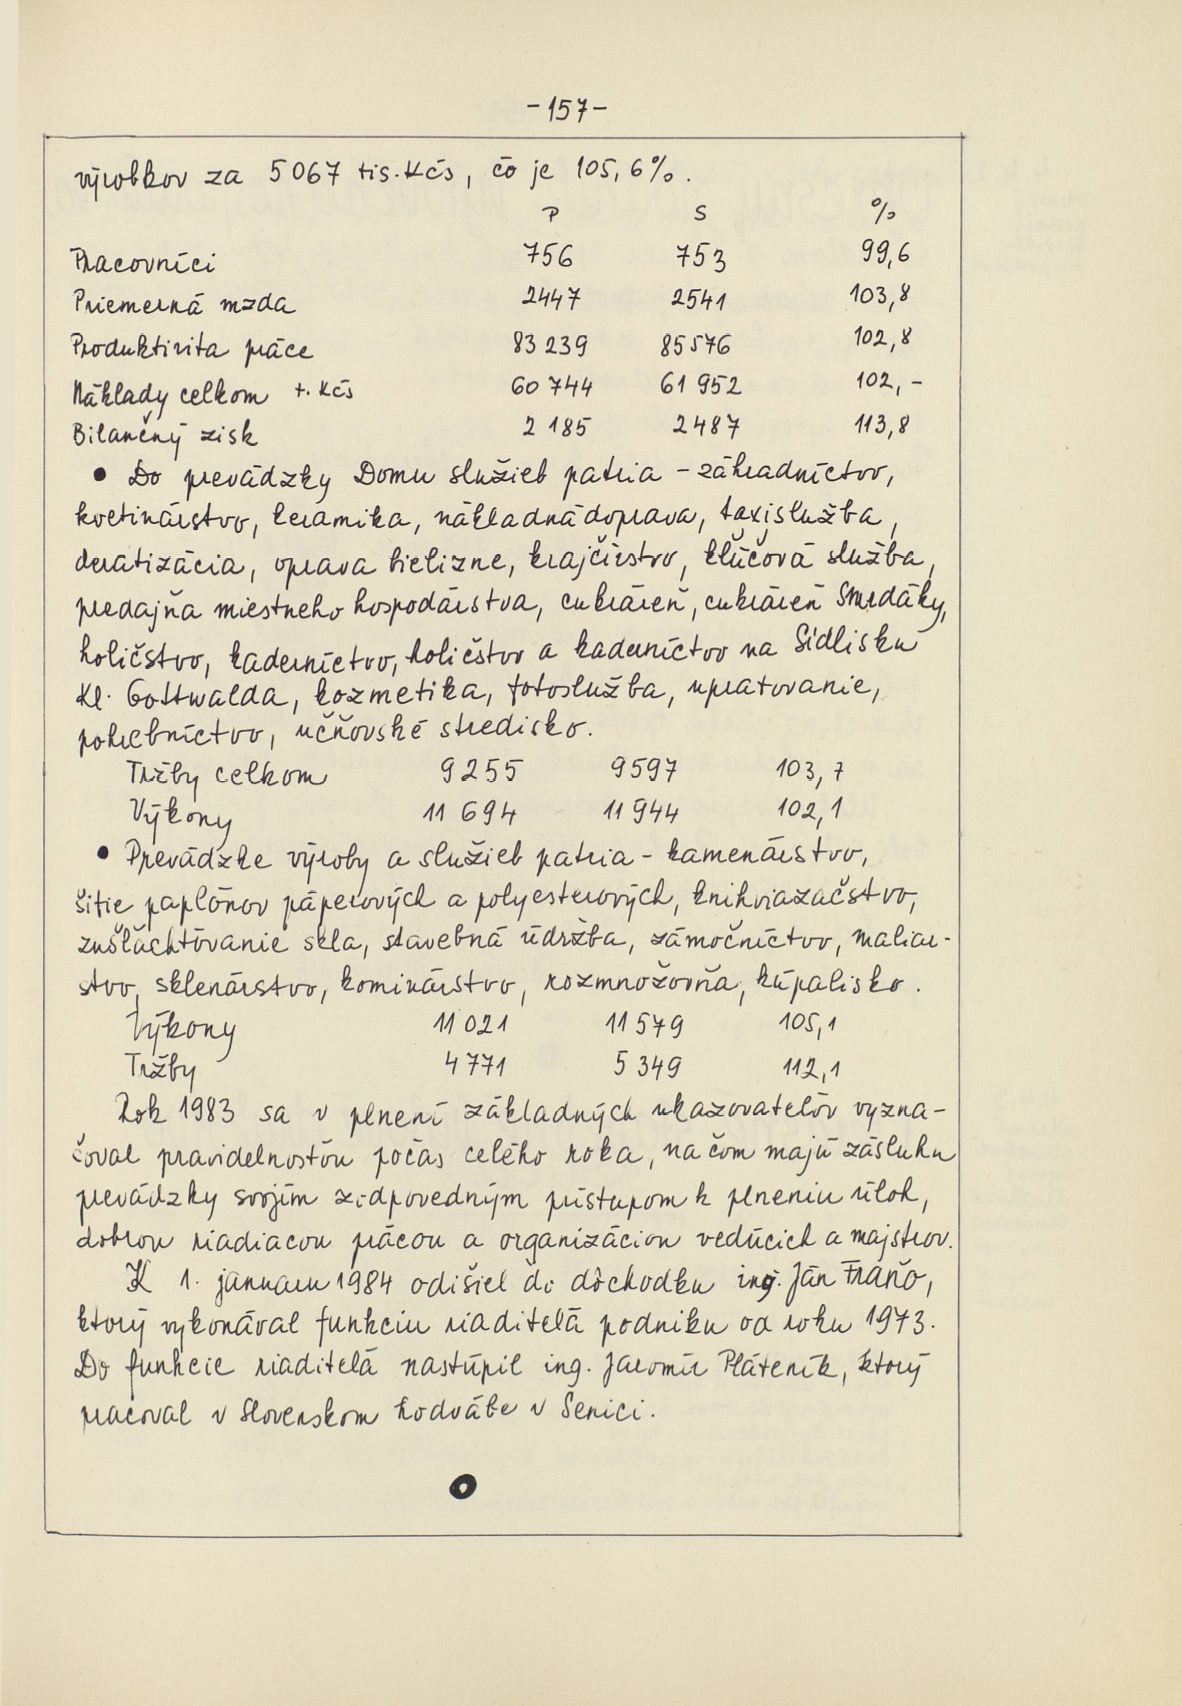 -157-
výrobkov za 5 067 tis. Kčs, čo je 105,6%.
P S %
Pracovníci 756 753 99,6
Priemerná mzda 2447 2541 103,8
Produktivita práce 83 239 85 576 102,8
Náklady celkom t. Kčs 60 744 61 952 102,-
Bilančný zisk 2 185 2 487 113,8
• Do prevádzky Domu služieb patria - záhradníctvo,
kvetinárstvo, keramika, nákladná doprava, taxislužba,
deratizácia, oprava bielizne, krajčírstvo, kľúčová služba,
predajňa miestneho hospodárstva, cukráreň, cukráreň Smrdáky,
holičstvo, kaderníctvo, holičstvo a kaderníctvo na Sídlisku
Kl. Gottwalda, kozmetika, fotoslužba, upratovanie,
pohrebníctvo, učňovské stredisko.
Tržby celkom 9255 9597 103,7
Výkony 11 694 11 944 102,1
• Prevádzke výroby a služieb patria - kamenárstvo,
šitie paplónov páperových a polyesterových, knihviazačstvo,
zušľachtovanie skla, stavebná údržba, zámočníctvo, maliar-
stvo, sklenárstvo, kominárstvo, rozmnožovňa, kúpalisko.
Výkony 11 021 11 579 105,1
Tržby 4 771 5 349 112,1
Rok 1983 sa v plnení základných ukazovateľov vyzna-
čoval pravidelnosťou počas celého roka, na čom majú zásluhu
prevádzky svojím zodpovedným prístupom k plneniu úloh,
dobrou riadiacou prácou a organizáciou vedúcich a majstrov.
K 1. januaru 1984 odišiel do dôchodku ing. Ján Fraňo,
ktorý vykonával funkciu riaditeľa podniku od roku 1973.
Do funkcie riaditeľa nastúpil ing. Jaromír Pláteník, ktorý
pracoval v Slovenskom hodvábe v Senici.